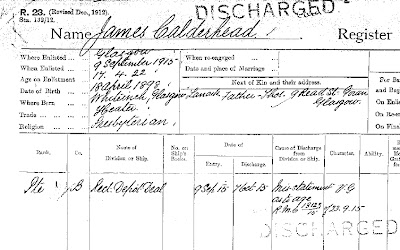 R. 23. (Revised Dec., 1912).
Sta. 132/12.
DISCHARGED
Name James Calderhead Register
Where Enlisted ... Glasgow
When Enlisted ... 9 September 1915
Age on Enlistment 17.4.22
Date of Birth ... 18 April 1898
Where Born ... Whiteinch, Glasgow, Lanark
Trade ... Heater
Religion ... Presbyterian
When re-engaged ...
Date and place of Marriage
Next of Kin and their address.
Father Thos. 9 Read St. Govan
Glasgow.
For Ba
and Reg
On Enlis
On Re-e
On Fina
Rank.
Co.
Name of Division or Ship.
No. on Ship's Books.
Date of
Entry.
Discharge.
Cause of Discharge from Division or Ship.
Character.
Ability.
Pte B Rect. Depot Deal 9 Sep 15 7 Oct 15 Mis-statement V.G
as to age
R.M.O 23.9.15
DISCHARGED